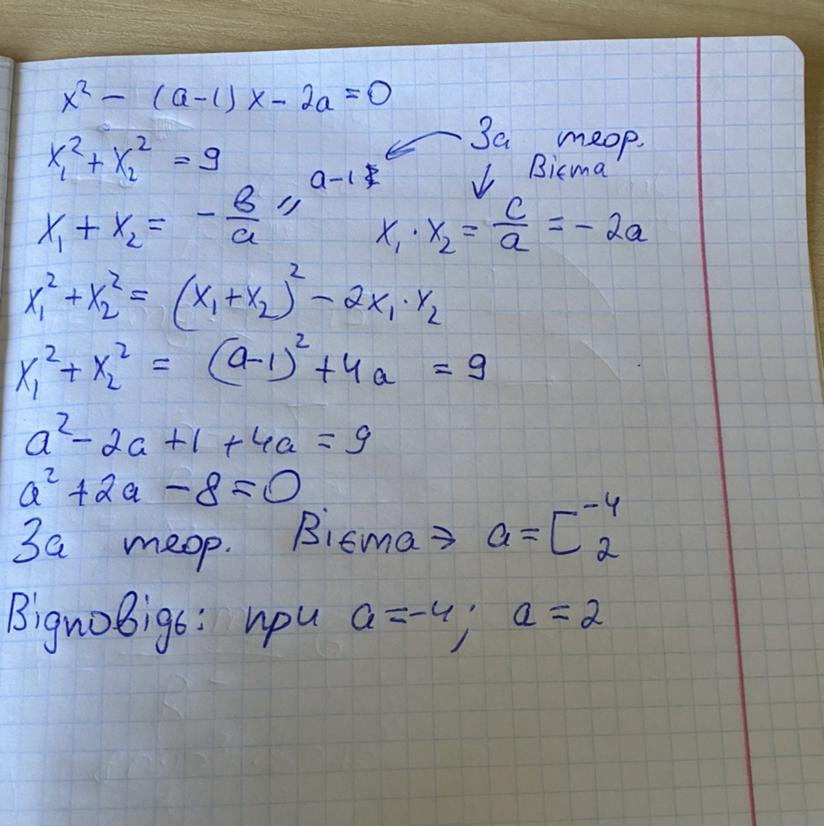 x² - (a-1)x - 2a = 0
x₁² + x₂² = 9
За теор. Вієта
x₁ + x₂ = -в/a = a-1
x₁ · x₂ = c/a = -2a
x₁² + x₂² = (x₁+x₂)² - 2x₁·x₂
x₁² + x₂² = (a-1)² + 4a = 9
a² - 2a + 1 + 4a = 9
a² + 2a - 8 = 0
За теор. Вієта ⇒ a = [ -4 2
Відповідь: при a = -4; a = 2